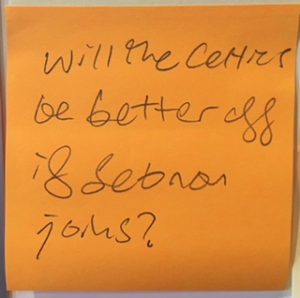 Will the Celtics
be better off
if Lebron
joins?